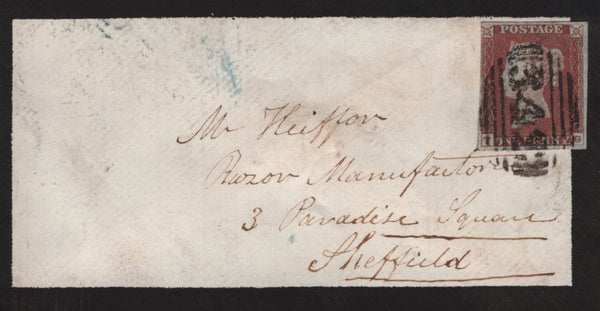 POSTAGE
Mr Heiffor
Razor Manufactore
3 Paradise Square
Sheffield